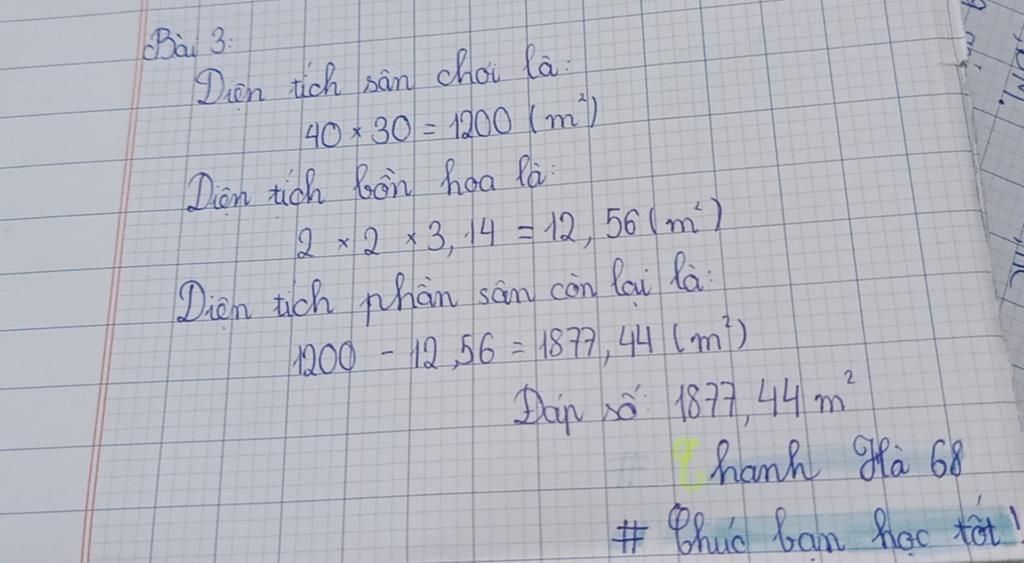 Bài 3:
Diện tích sân chơi là:
40 × 30 = 1200 (m²)
Diện tích bồn hoa là:
2 × 2 × 3,14 = 12,56 (m²)
Diện tích phần sân còn lại là:
1200 - 12,56 = 1877,44 (m²)
Đáp số: 1877,44 m²
# Thanh Hà 68
# Chúc bạn học tốt!